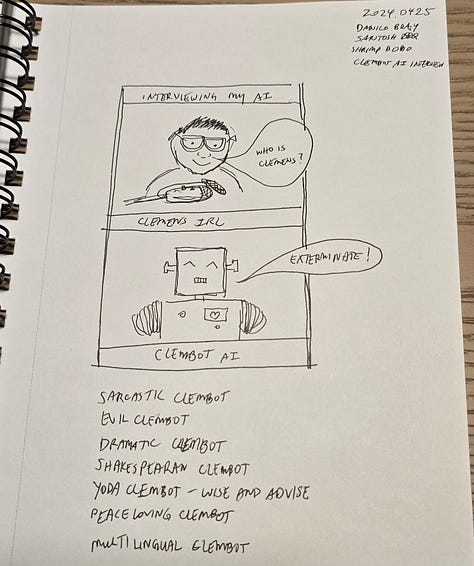 2024.0425
DANILO BREY
SANTOSH
SHRIMP BOBO
CLEMBOT AI INTERVIEW
INTERVIEWING MY AI
WHO IS
CLEMENS?
CLEMENS IRL
EXTERMINATE!
CLEMBOT AI
SARCASTIC CLEMBOT
EVIL CLEMBOT
DRAMATIC CLEMBOT
SHAKESPEARAN CLEMBOT
YODA CLEMBOT - WISE AND ADVISE
PEACE LOVING CLEMBOT
MULTILINGUAL CLEMBOT